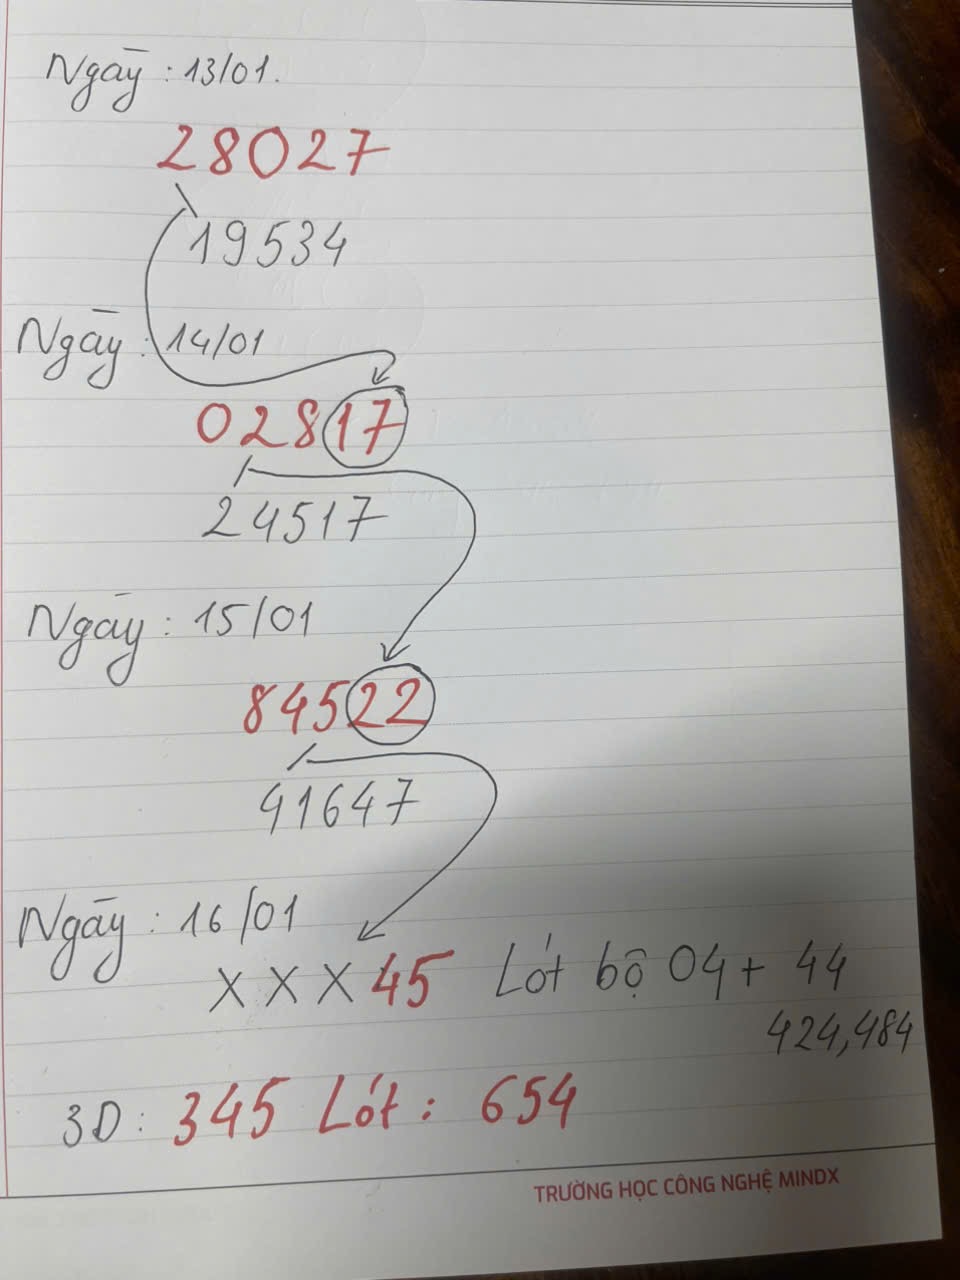 Ngày : 13/01.
28027
19534
Ngày : 14/01
02817
24517
Ngày : 15/01
84522
41647
Ngày : 16/01
X X X 45 Lót bộ 04 + 44
424,484
3D : 345 Lót : 654
TRƯỜNG HỌC CÔNG NGHỆ MINDX